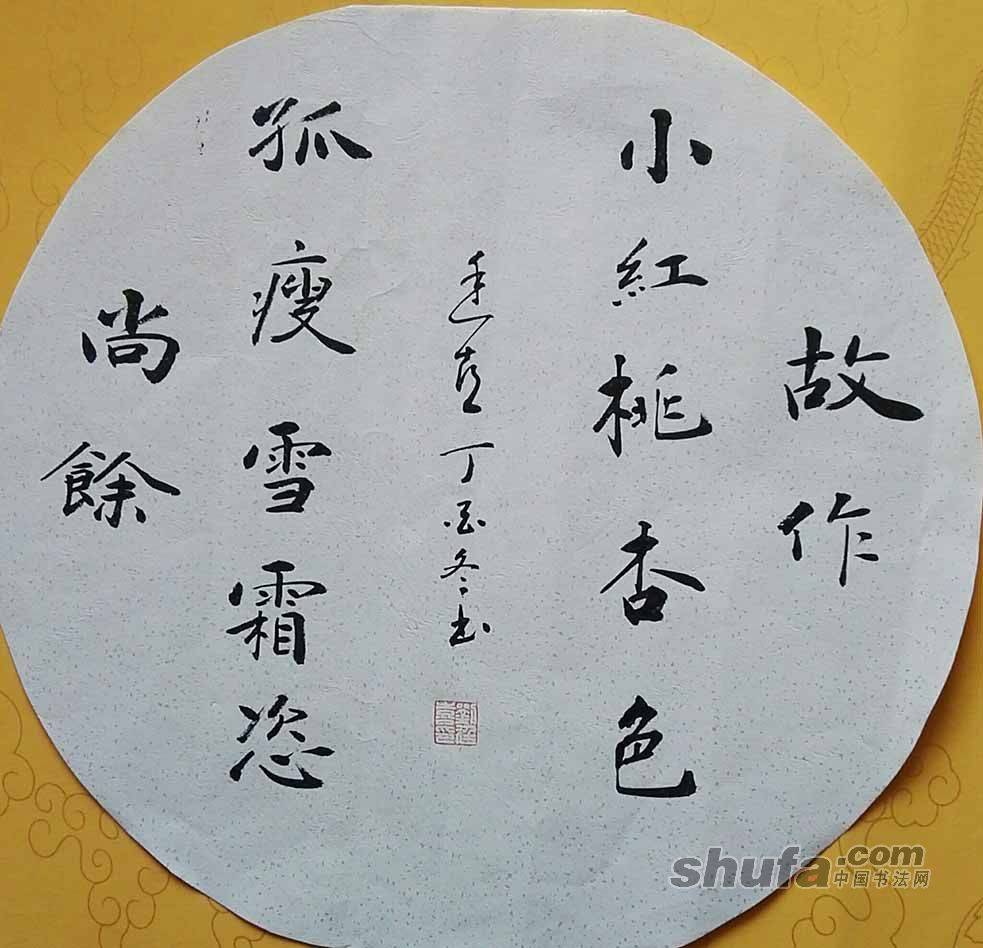 故作
小紅桃杏色
尚餘
孤瘦雪霜恣
丁酉冬书
shufa.com
中国书法网